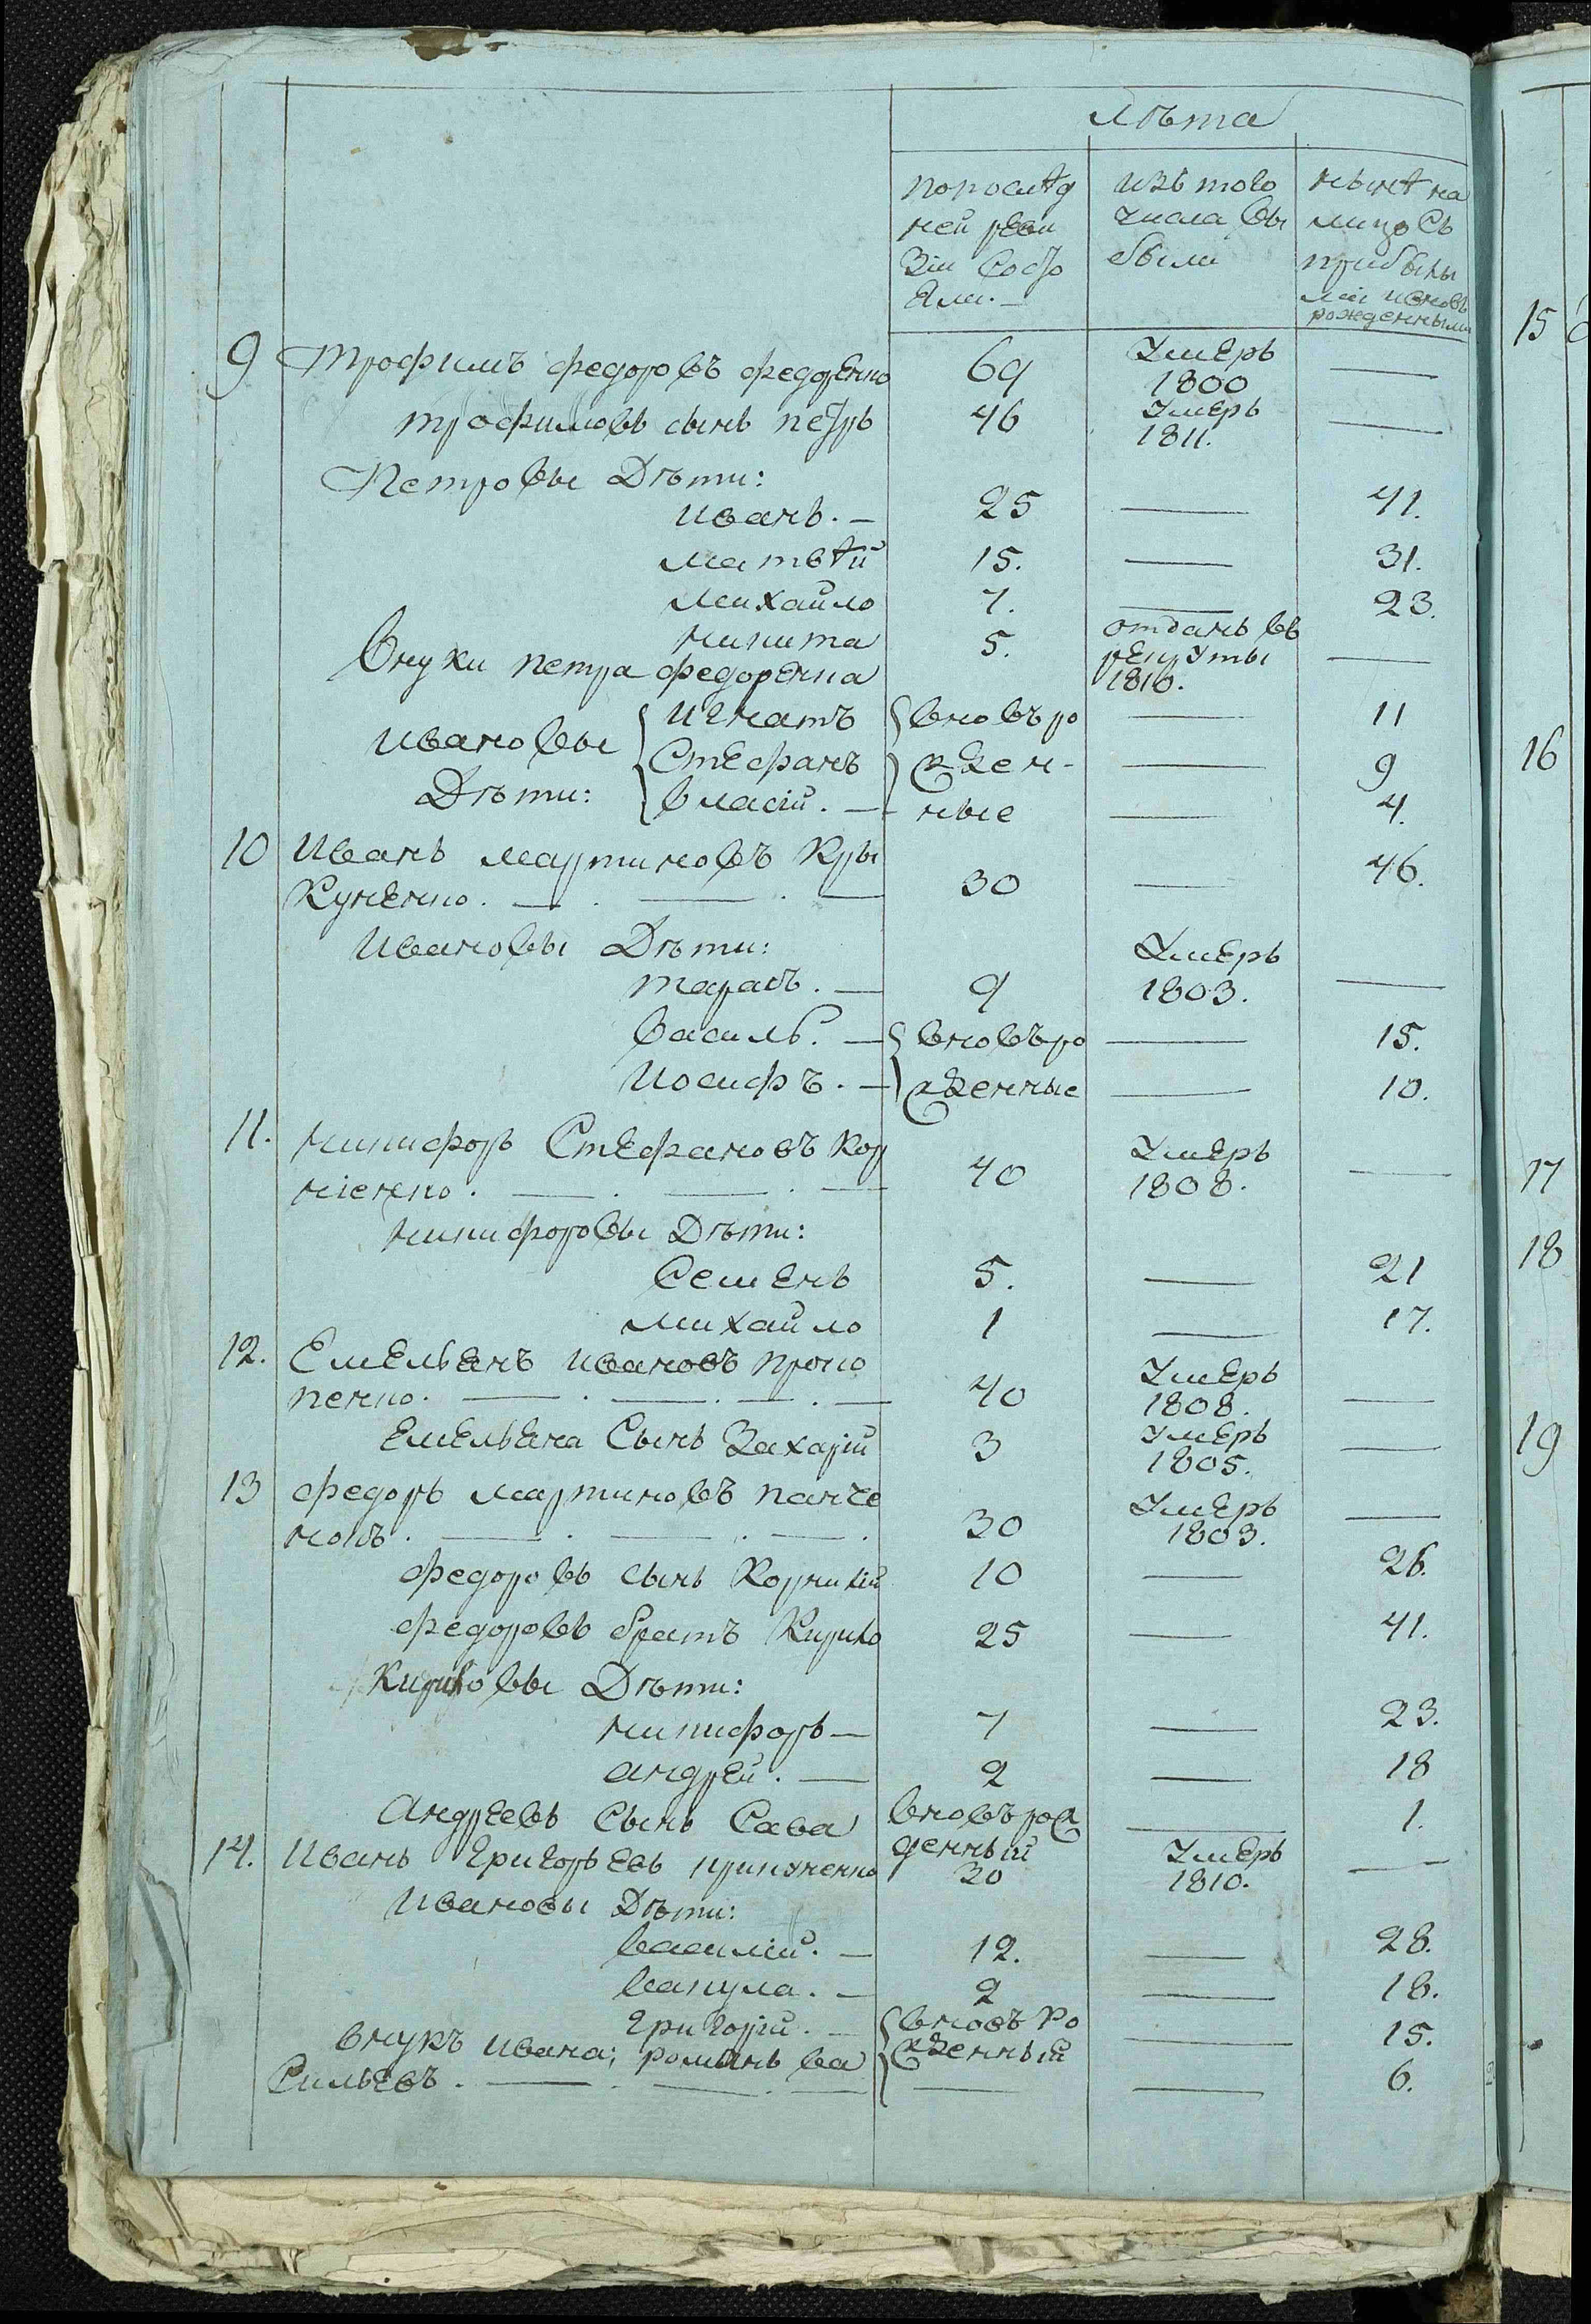 лѣта
по послѣд
ней реви
зіи состо
яли. —
изъ того
числа вы
были
нынѣ на
лицо съ
прибылы
ми и вновь
рожденными
9 Трофимъ Федоровъ Федоренко 69 умеръ 1800 —
Трофимовъ сынъ Петръ 46 умеръ 1811. —
Петровы Дѣти:
Иванъ. — 25 — 41.
Матвѣй 15. — 31.
Михайло 7. — 23.
Никита 5. отданъ въ рекруты 1810. —
Внуки Петра Федоренка
Ивановы Дѣти:
Игнатъ вновь ро — 11
Стефанъ жден- — 9
Власій. — ные — 4.
10 Иванъ Мартиновъ Кры
куненко. — . — . — 30 — 46.
Ивановы Дѣти:
Тарасъ. — 9 умеръ 1803. —
Василь. — вновь ро — 15.
Иосифъ. — жденные — 10.
11. Никифоръ Стефановъ Кор
ніенко. — . — . — 40 умеръ 1808. —
Никифоровы Дѣти:
Семенъ 5. — 21
Михайло 1 — 17.
12. Емельянъ Ивановъ Проко
пенко. — . — . — . — 40 умеръ 1808. —
Емельяна Сынъ Захарій 3 умеръ 1805. —
13 Федоръ Мартиновъ Панче
нокъ. — . — . — . 30 умеръ 1803. —
Федоровъ сынъ Корнилій 10 — 26.
Федоровъ братъ Кирило 25 — 41.
Кириловы Дѣти:
Никифоръ — 7 — 23.
Андрей. — 2 — 18
Андреевъ Сынъ Сава вновь рож
денный — 1.
14. Иванъ Григорьевъ 30 умеръ 1810. —
Ивановы Дѣти:
Василій. — 12. — 28.
Вакула. — 2 — 18.
Григорій. — вновь ро — 15.
Внукъ Ивана; Романъ Ва жденный
сильевъ. — . — . — — — 6.
15
16
17
18
19